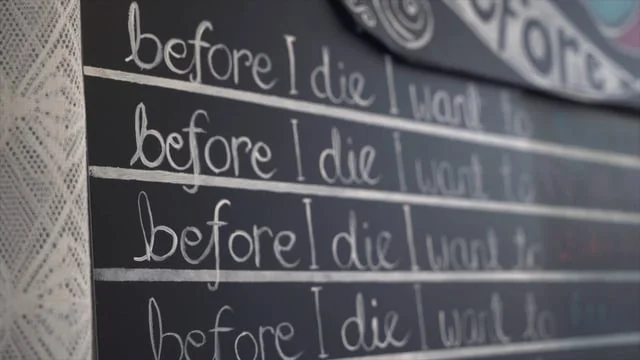 before
before I die I want to
before I die I want to
before I die I want to
before I die I want to